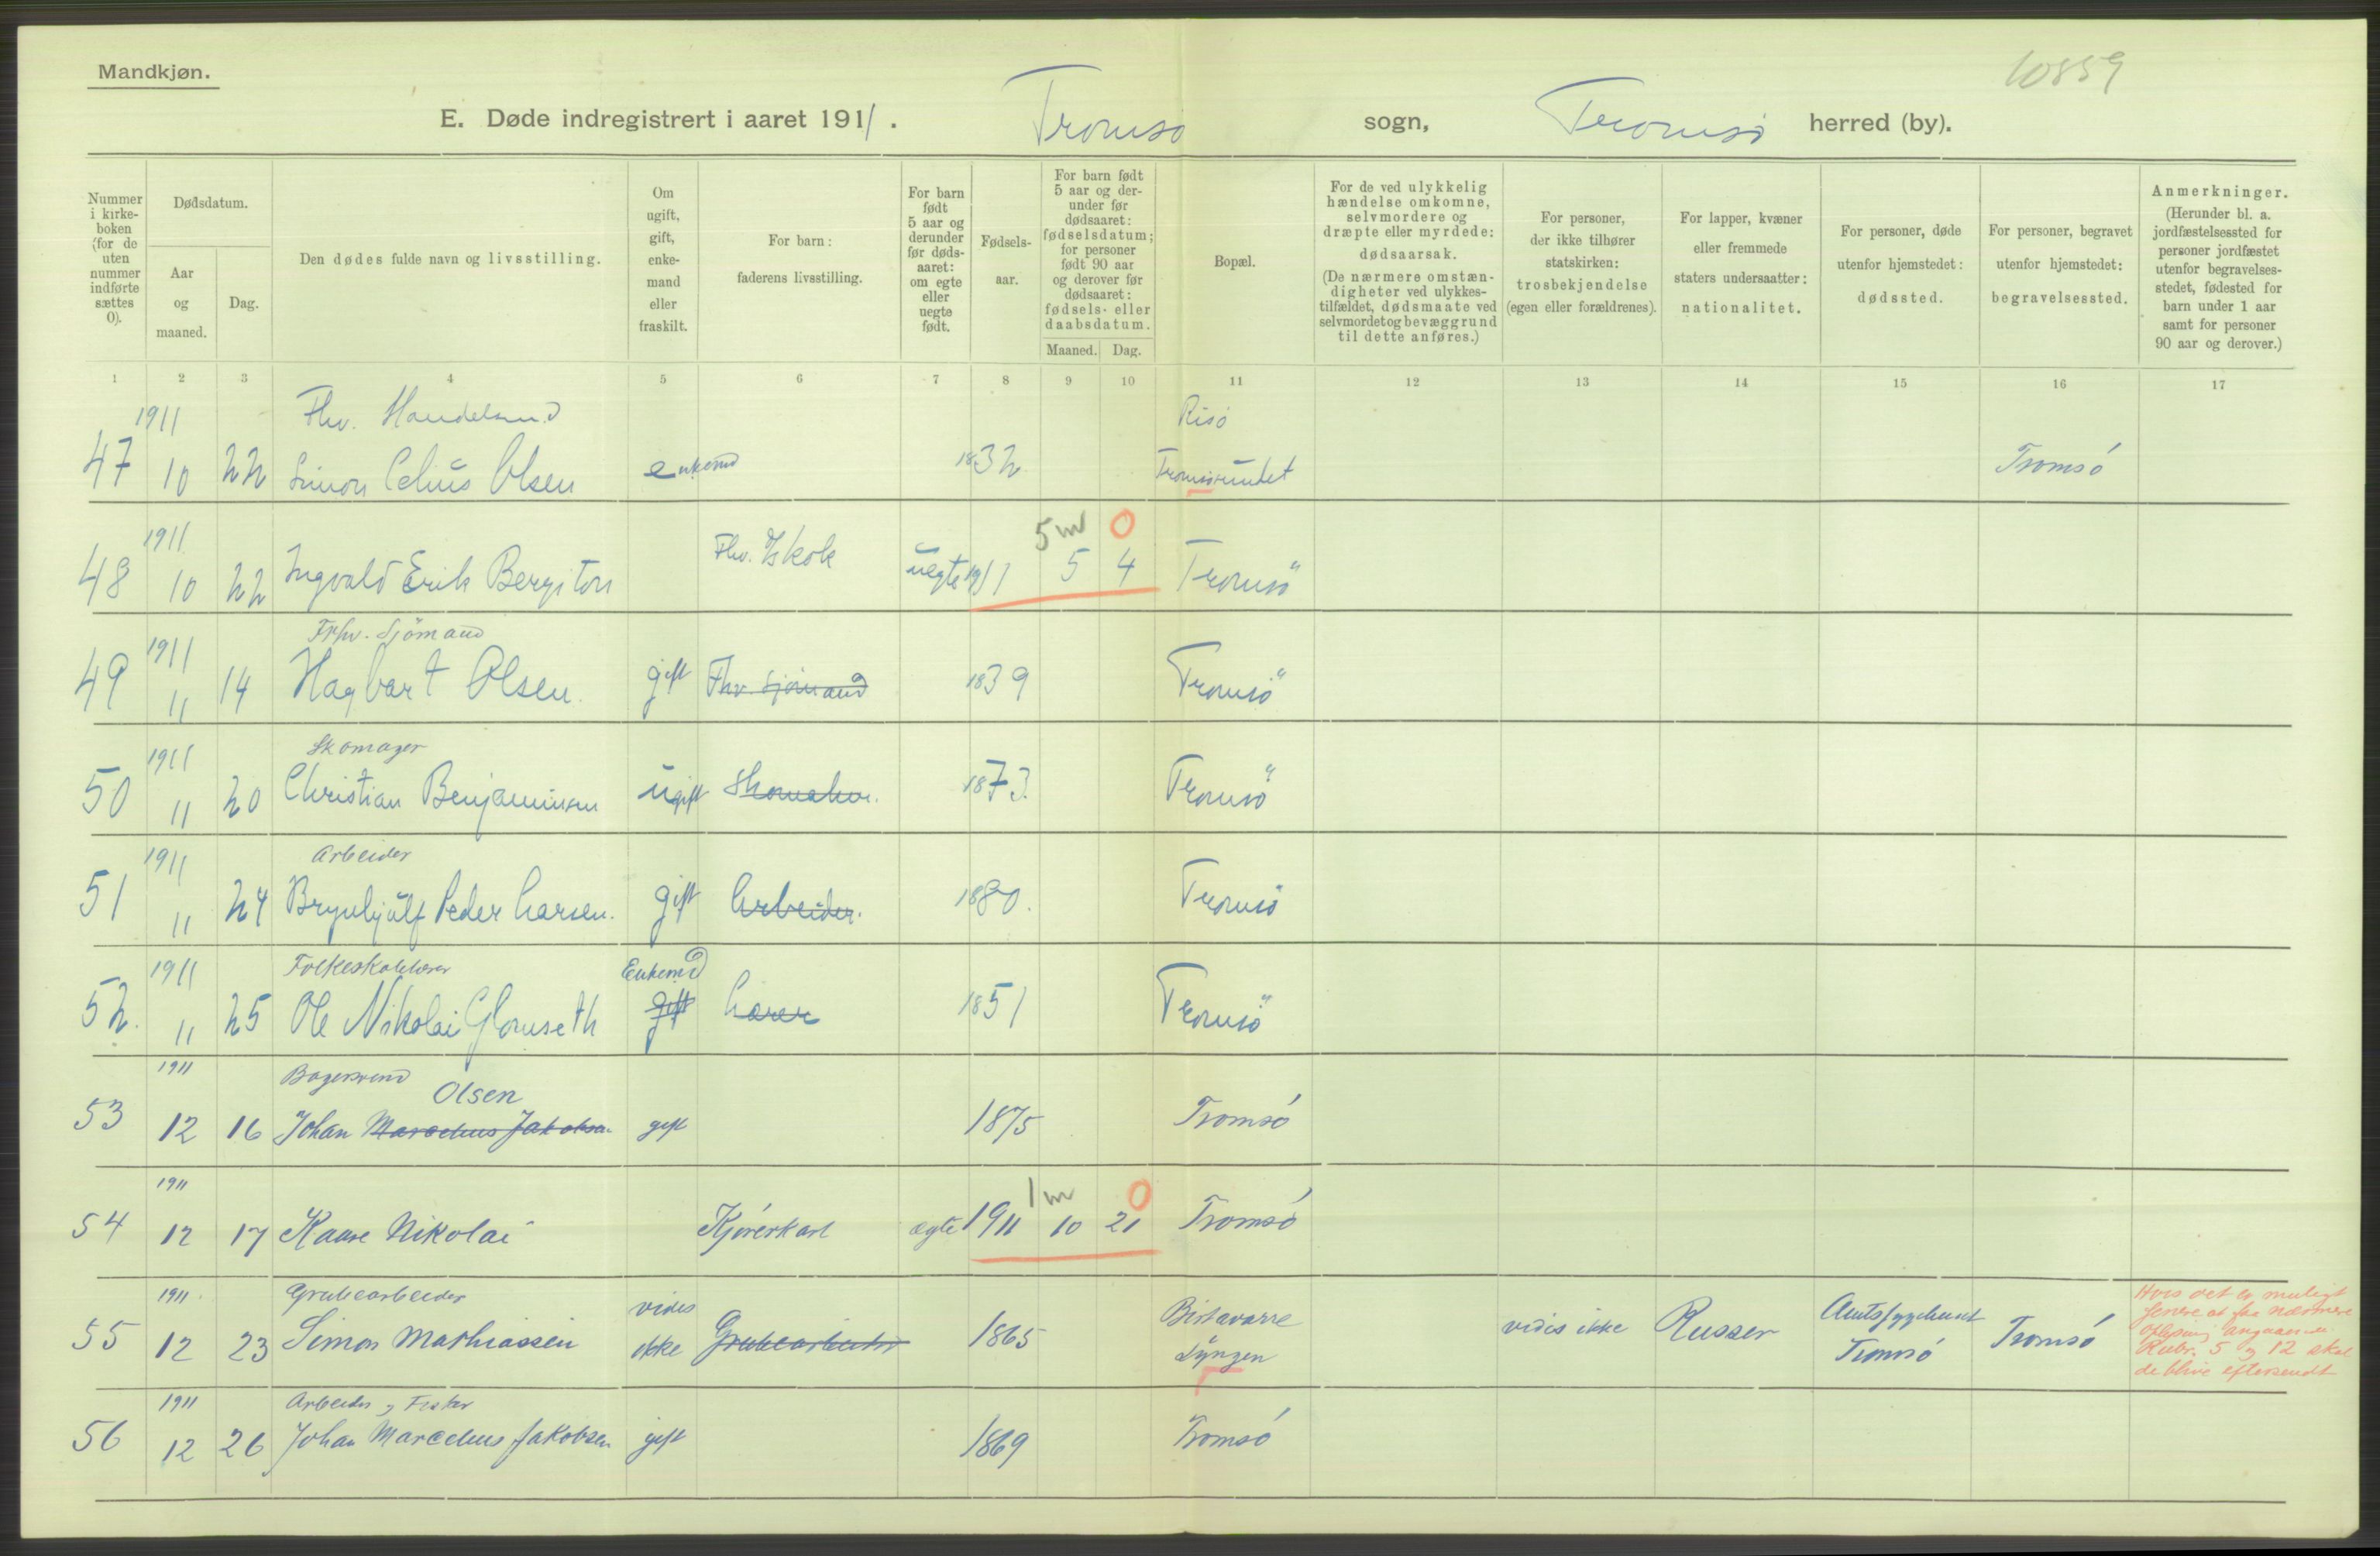 Mandkjøn.
10859
E. Døde indregistrert i aaret 1911. Tromsø sogn, Tromsø herred (by).
Nummer i kirke-boken (for de uten nummer indførte sættes 0).
Dødsdatum.
Aar og maaned.
Dag.
Den dødes fulde navn og livsstilling.
Om ugift, gift, enke-mand eller fraskilt.
For barn: faderens livsstilling.
For barn født 5 aar og derunder før døds-aaret: om egte eller uegte født.
Fødsels-aar.
For barn født 5 aar og der-under før dødsaaret: fødselsdatum; for personer født 90 aar og derover før dødsaaret: fødsels- eller daabsdatum.
Maaned. Dag.
Bopæl.
For de ved ulykkelig hændelse omkomne, selvmordere og dræpte eller myrdede: dødsaarsak. (De nærmere omstæn-digheter ved ulykkes-tilfældet, dødsmaate ved selvmordet og bevæggrund til dette anføres.)
For personer, der ikke tilhører statskirken: trosbekjendelse (egen eller forældrenes).
For lapper, kvæner eller fremmede staters undersaatter: nationalitet.
For personer, døde utenfor hjemstedet: dødssted.
For personer, begravet utenfor hjemstedet: begravelsessted.
Anmerkninger. (Herunder bl. a. jordfæstelsessted for personer jordfæstet utenfor begravelses-stedet, fødested for barn under 1 aar samt for personer 90 aar og derover.)
1 2 3 4 5 6 7 8 9 10 11 12 13 14 15 16 17
1911 Fhv. Handelsmd Risø
47 10 22 Simon Celius Olsen enkemd 1832 Tromsøsundet Tromsø
1911 5 m 0
48 10 22 Ingvald Erik Bergiton Fhv. uegte 1911 5 4 Tromsø
1911 Fhv. Sjömand
49 11 14 Hagbart Olsen. gift Fhv. Sjömand 1839 Tromsø
1911 Skomager
50 11 20 Christian Benjaminsen ugift Skomaker. 1873. Tromsø
1911 Arbeider
51 11 24 Brynhjulf Peder Larsen. gift Arbeider. 1880. Tromsø
1911 Folkeskolelærer Enkemd
52. 11 25 Ole Nikolai Glomseth gift Lærer 1851 Tromsø
1911 Bagersvend Olsen
53 12 16 Johan Marcelius Jakobsen gift 1875 Tromsø
1911 1 m 0
54 12 17 Kaare Nikolai Kjörerkarl ægte 1911 10 21 Tromsø
1911 Grubearbeider vides Birtavarre Amtssygehuset
55 12 23 Simon Mathiassen ikke Grubearbeider 1865 Lyngen vides ikke Russer Tromsø Tromsø
Hvis det er muligt
senere at faa nærmere
oplysning angaaende
Rubr. 5 og 12 skal
de blive eftersendt
1911 Arbeider og Fisker
56 12 26 Johan Marcelius Jakobsen gift 1869 Tromsø